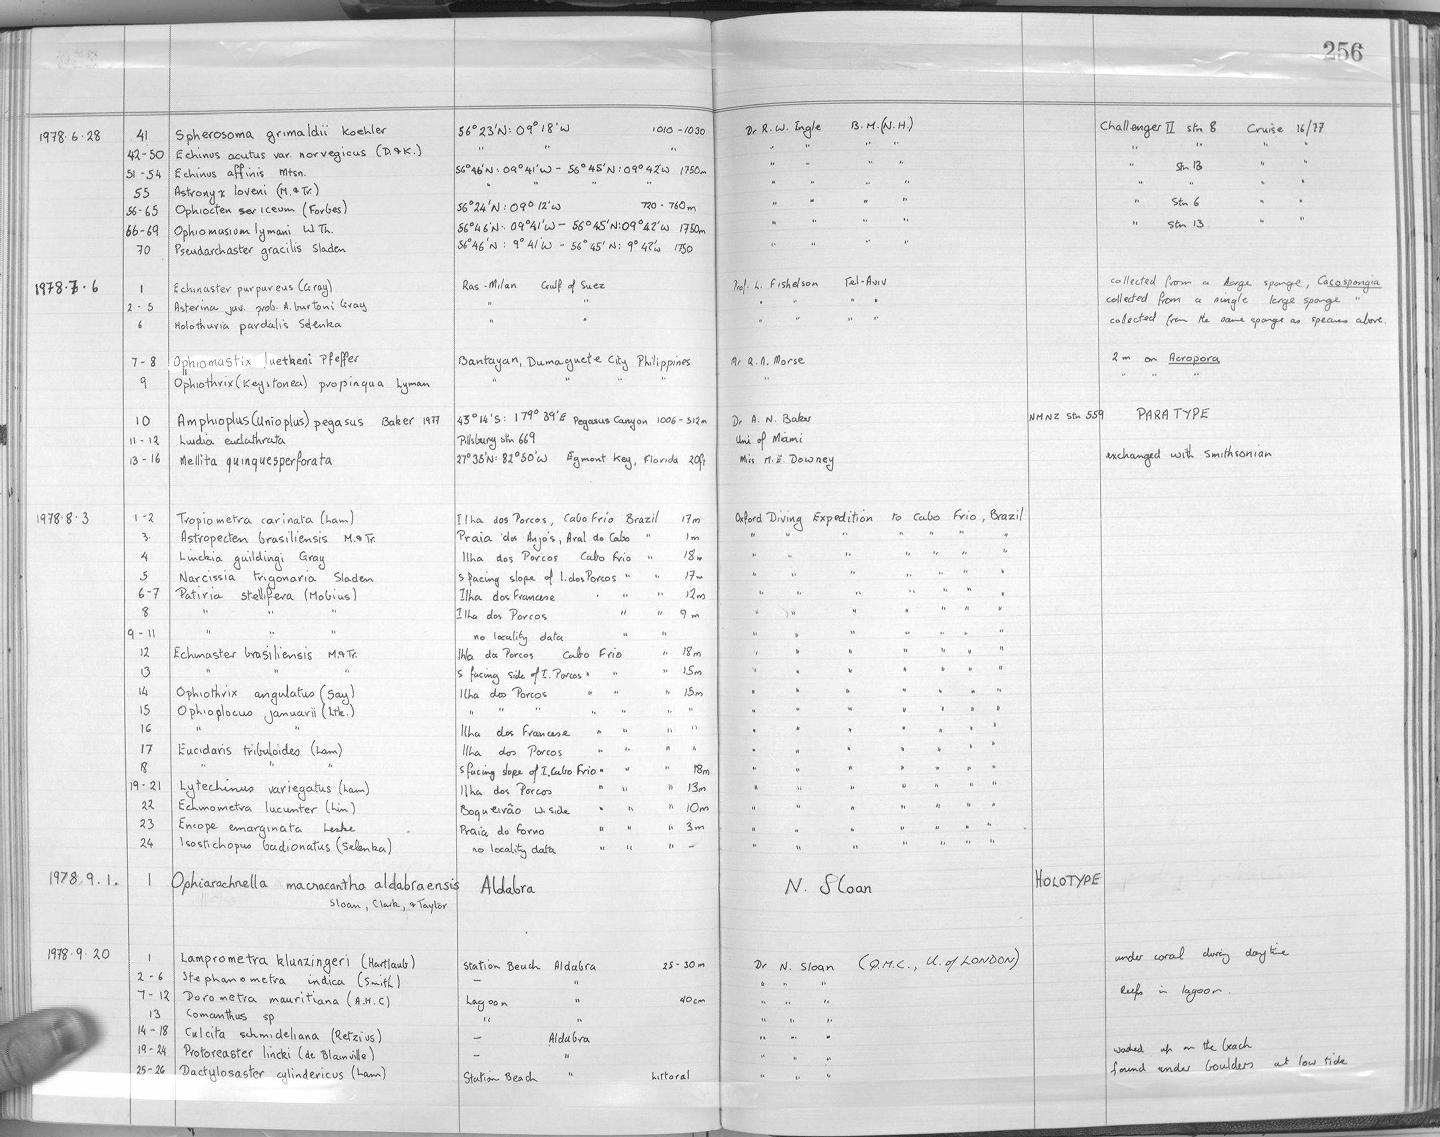 256
1978.6.28 41 Spherosoma grimaldii Koehler 56°23'N: 09°18'W 1010-1030 Dr R.W. Ingle B.M.(N.H.) Challenger II stn 8 Cruise 16/77
42-50 Echinus acutus var. norvegicus (D.&K.) " " " " " " " " " " "
51-54 Echinus affinis Mtsn. 56°46'N: 09°41'W - 56°45'N: 09°42'W 1750m " " " " " Stn 13 " "
55 Astronyx loveni (M.&Tr.) " " " " " " " " " " " "
56-65 Ophiocten sericeum (Forbes) 56°24'N: 09°12'W 720-760m " " " " " Stn 6 " "
66-69 Ophiomusium lymani W.Th. 56°46'N: 09°41'W - 56°45'N: 09°42'W 1750m " " " " " Stn 13 " "
70 Pseudarchaster gracilis Sladen 56°46'N: 9°41'W - 56°45'N: 9°42'W 1750 " " " "
1978.7.6 1 Echinaster purpureus (Gray) Ras-Milan Gulf of Suez Prof. L. Fishelson Tel-Aviv collected from a large sponge, Cacospongia
2-5 Asterina juv. prob. A. burtoni Gray " " " " " " collected from a single large sponge "
6 Holothuria pardalis Selenka " " " " " " collected from the same sponge as species above.
7-8 Ophiomastix luetkeni Pfeffer Bantayan, Dumaguete City Philippines Mr R.A. Morse 2m on Acropora
9 Ophiothrix (Keystonea) propinqua Lyman " " " " " " "
10 Amphioplus (Unioplus) pegasus Baker 1977 43°14'S: 179°39'E Pegasus Canyon 1006-512m Dr A. N. Baker NMNZ Stn 559 PARATYPE
11-12 Luidia eudathrata Pillsbury stn 669 Uni of Miami
13-16 Mellita quinquesperforata 27°35'N: 82°50'W Egmont Key, Florida 20ft Miss M.E. Downey exchanged with Smithsonian
1978.8.3 1-2 Tropiometra carinata (Lam) Ilha dos Porcos, Cabo Frio Brazil 17m Oxford Diving Expedition to Cabo Frio, Brazil
3 Astropecten brasiliensis M.&Tr. Praia dos Anjos, Aral do Cabo " 1m " " " " " " "
4 Linckia guildingi Gray Ilha dos Porcos Cabo Frio " 18m " " " " " " "
5 Narcissia trigonaria Sladen S facing slope of I. dos Porcos " " 17m " " " " " " "
6-7 Patiria stellifera (Mobius) Ilha dos Francese " " " 12m " " " " " " "
8 " " " Ilha dos Porcos " " 9m " " " " " " "
9-11 " " " no locality data " " " " " " " " "
12 Echinaster brasiliensis M.&Tr. Ilha da Porcos Cabo Frio " 18m " " " " " " "
13 " " " S facing side of I. Porcos " " " 15m " " " " " " "
14 Ophiothrix angulatus (Say) Ilha dos Porcos " " " 15m " " " " " " "
15 Ophioplocus januarii (Ltk.) " " " " " " " " " " " " " "
16 " " Ilha dos Francese " " " " " " " " " " "
17 Eucidaris tribuloides (Lam) Ilha dos Porcos " " " " " " " " " " "
18 " " " S facing slope of I. Cabo Frio " " " 18m " " " " " " "
19-21 Lytechinus variegatus (Lam) Ilha dos Porcos " " " 13m " " " " " " "
22 Echinometra lucunter (Lin) Boqueirão W. side " " " 10m " " " " " " "
23 Encope emarginata Leske Praia do Forno " " " 3m " " " " " " "
24 Isostichopus badionatus (Selenka) no locality data " " " - " " " " " " "
1978.9.1. 1 Ophiarachnella macracantha aldabraensis Aldabra N. Sloan HOLOTYPE
Sloan, Clark, & Taylor
1978.9.20 1 Lamprometra klunzingeri (Hartlaub) Station Beach Aldabra 25-30m Dr N. Sloan (Q.M.C., U. of LONDON) under coral during daytime
2-6 Stephanometra indica (Smith) - " " " "
7-12 Dorometra mauritiana (A.H.C) Lagoon " 40cm " " " Reefs in lagoon.
13 Comanthus sp " " " " "
14-18 Culcita schmideliana (Retzius) - Aldabra " " "
19-24 Protoreaster lincki (de Blainville) - " " " " washed up on the beach
25-26 Dactylosaster cylindericus (Lam) Station Beach " Littoral " " " found under boulders at low tide